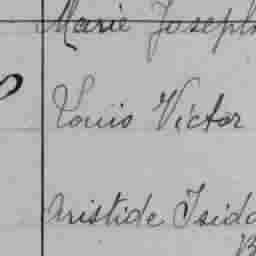 Marie Joseph
Louis Victor
Aristide Isido